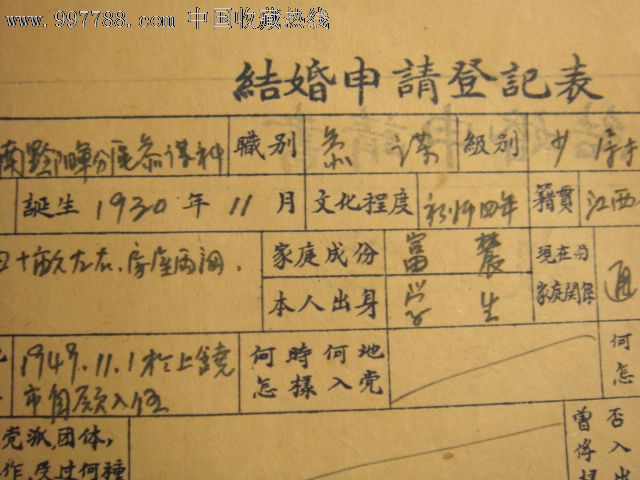 www.997788.com 中国收藏热线
結婚申請登記表
職別 参 谋 級別
誕生 1930 年 11 月 文化程度 初师四年 籍貫 江西
十畝左右,房屋两间,
家庭成份 富 農 現在与家庭関係 通
本人出身 学 生
1949.11.1於上饒市自願入伍
何時何地怎樣入党 何怎
党派,团体,
作,受过何種
否曾入俘出